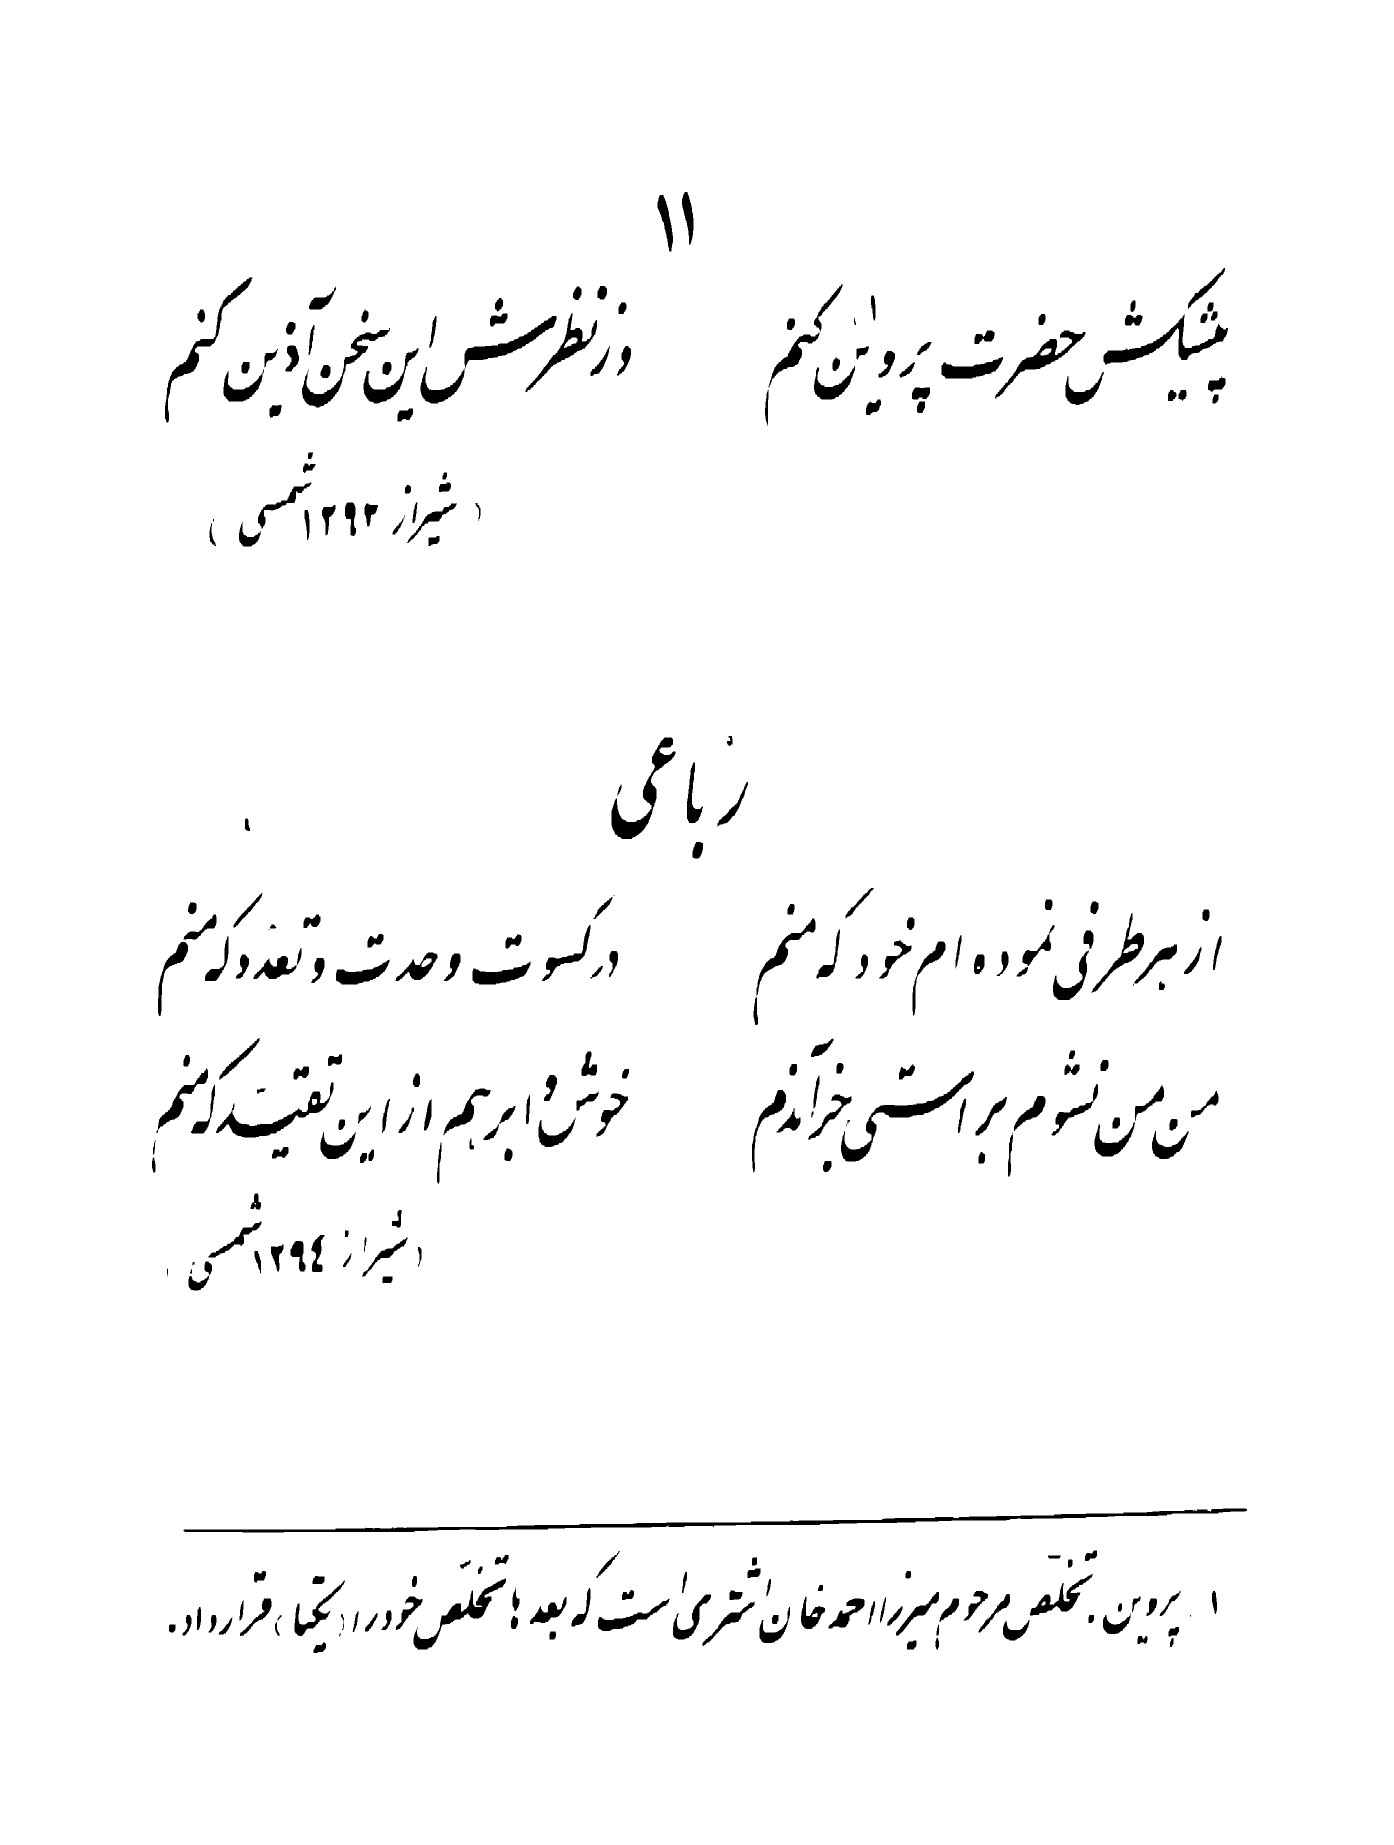 ۱۱
پیشکش حضرت پروین۱ کنم وز نظرش این سخن آذین کنم
(شیراز ۱۲۹۳ شمسی)
رباعی
از هر طرفی نموده ام خود که منم در کسوت وحدت و تعدد که منم
من من نشوم براستی جز آندم خوش وا برهم از این تقید که منم
(شیراز ۱۲۹٤ شمسی)
۱ پروین. تخلّص مرحوم میرزا احمد خان اشتری است که بعدها تخلّص خود را (یکتا) قرار داد.